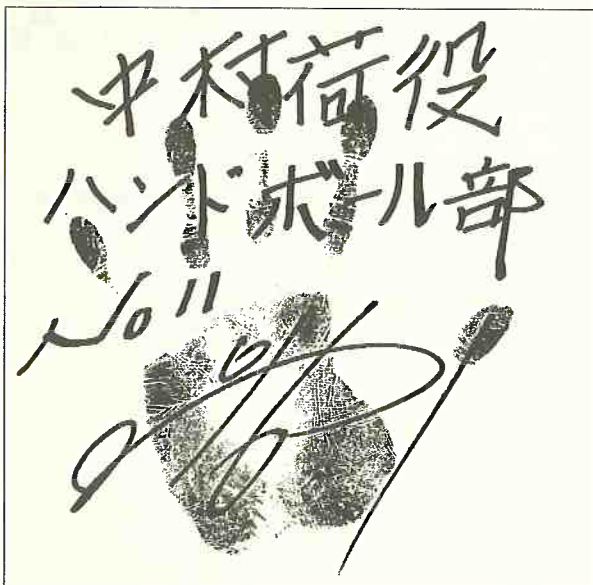 中村荷役
ハンドボール部
No 11